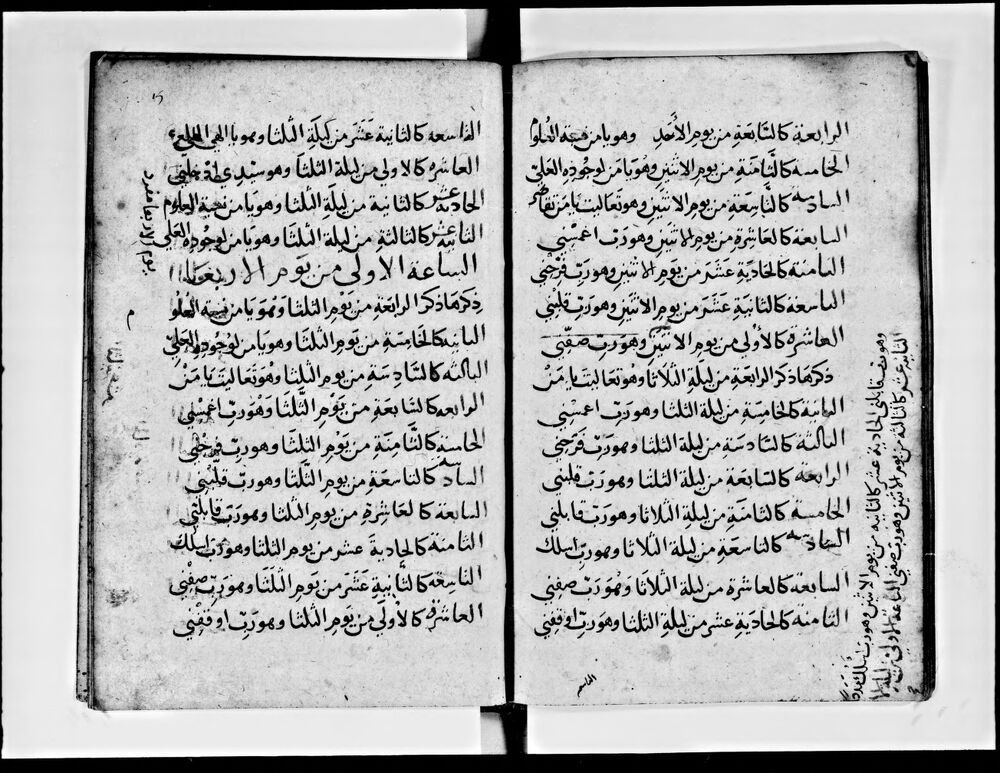 الرابعة كالسابعة من يوم الأحد وهو يا من فتحة العلوم
الخامسة كالثامنة من يوم الاثنين وهو يا من لوجوده العلي
السادسة كالتاسعة من يوم الاثنين وهو تعاليت يا من تقاصر
السابعة كالعاشرة من يوم الاثنين وهو رب اغمسني
الثامنة كالحادية عشر من يوم الاثنين وهو رب فرحني
التاسعة كالثانية عشر من يوم الاثنين وهو رب قلبني
العاشرة كالأولى من يوم الاثنين وهو رب صفني
ذكرها ذكر الرابعة من ليلة الثلاثا وهو تعاليت يا من
الثانية كالخامسة من ليلة الثلثا وهو رب اغمسني
الثالثة كالسادسة من ليلة الثلثا وهو رب فرحني
الرابعة كالسابعة من ليلة الثلثا وهو رب قلبني
الخامسة كالثامنة من ليلة الثلاثا وهو رب قابلني
السادسة كالتاسعة من ليلة الثلاثا وهو رب اسلك
السابعة كالعاشرة من ليلة الثلاثا وهو رب صفني
الثامنة كالحادية عشر من ليلة الثلثا وهو رب اوقفني
التاسعه
الحادية عشر كالثانيه من يوم الاثنين وهو رب اسلك
الثانية عشر كالثالثة من يوم الاثنين وهو رب صفني الساعة الاولى من ليلة
التاسعه كالثانية عشر من ليلة الثلثا وهو يا الهي
العاشره كالاولى من ليلة الثلثا وهو سيدي
الحادية عشر كالثانية من ليلة الثلثا وهو يا من فتحة العلوم
الثانيه عشر كالثالثة من ليلة الثلثا وهو يا من لوجوده العلي
الساعة الاولى من يوم الاربعا
ذكرها ذكر الرابعة من يوم الثلثا وهو يا من فتحة العلوم
الثانيه كالخامسة من يوم الثلثا وهو يا من لوجوده العلي
الثالثه كالسادسة من يوم الثلثا وهو تعاليت يا من
الرابعه كالسابعة من يوم الثلثا وهو رب اغمسني
الخامسة كالثامنة من يوم الثلثا وهو رب فرحني
السادسه كالتاسعة من يوم الثلثا وهو رب قلبني
السابعة كالعاشرة من يوم الثلثا وهو رب قابلني
الثامنة كالحادية عشر من يوم الثلثا وهو رب اسلك
التاسعة كالثانية عشر من يوم الثلثا وهو رب صفني
العاشره كالأولى من يوم الثلثا وهو رب اوقفني
يوم الاربعا
م